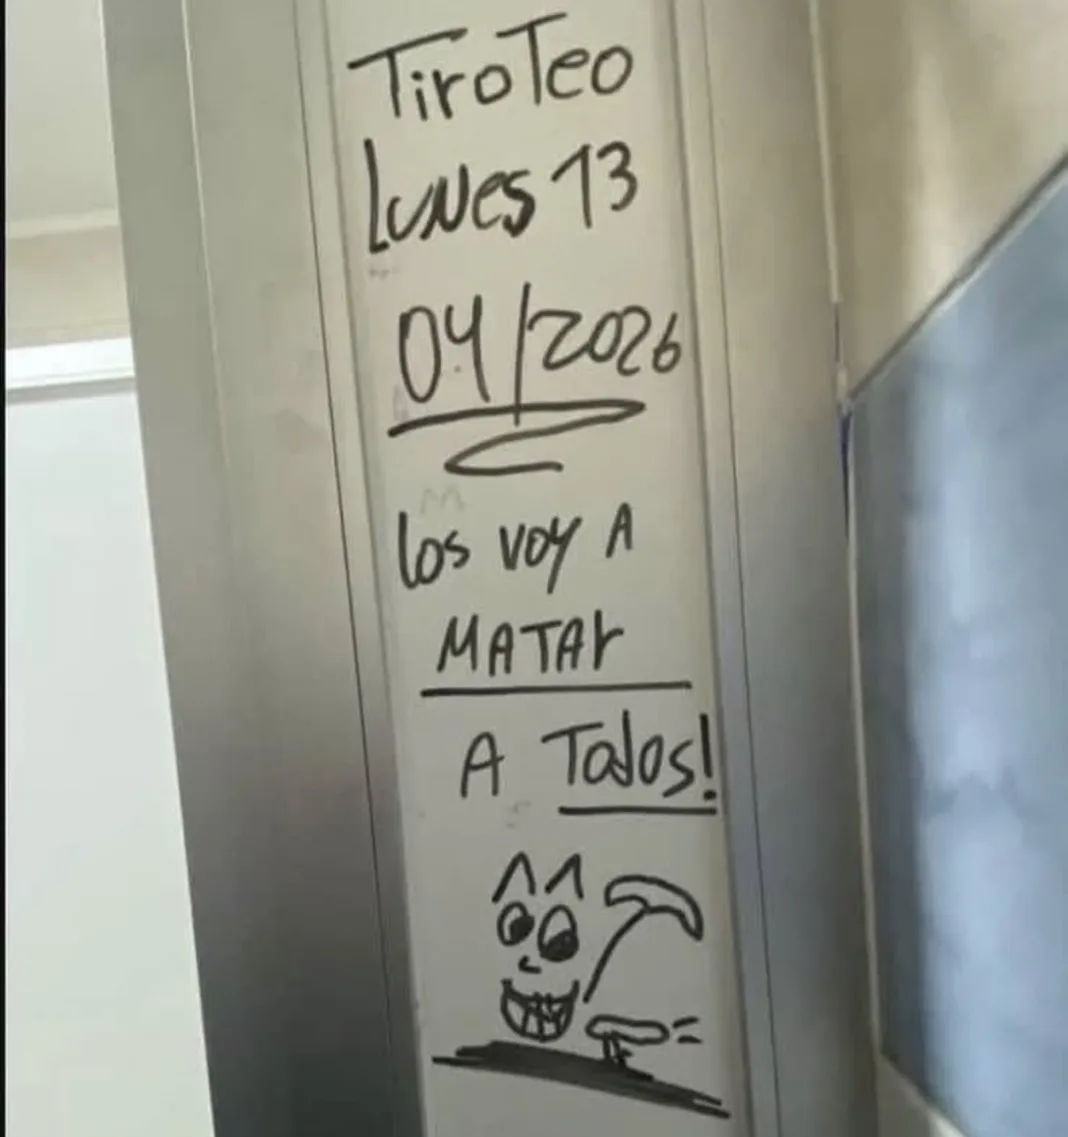 TiroTeo
LUNes 13
04/2026
Los voy A
MATAr
A Todos!